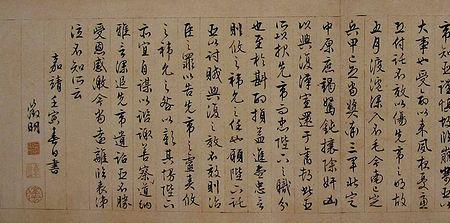 帝知臣謹慎故臨崩寄臣以
大事也受命以來夙夜憂慮
恐付託不效以傷先帝之明故
五月渡瀘深入不毛今南已定
兵甲已足當獎率三軍北定
中原庶竭駑鈍攘除奸凶
以興復漢室還于舊都此臣
所以報先帝而忠陛下之職分
也至於斟酌損益進盡忠言
則攸之禕允之任也願陛下託
臣以討賊興復之效不效則治
臣之罪以告先帝之靈責攸
之禕允之咎以彰其慢陛下
亦宜自謀以諮諏善察道納
雅言深追先帝遺詔臣不勝
受恩感激今當遠離臨表涕
泣不知所云
嘉靖壬寅春日書
徵明